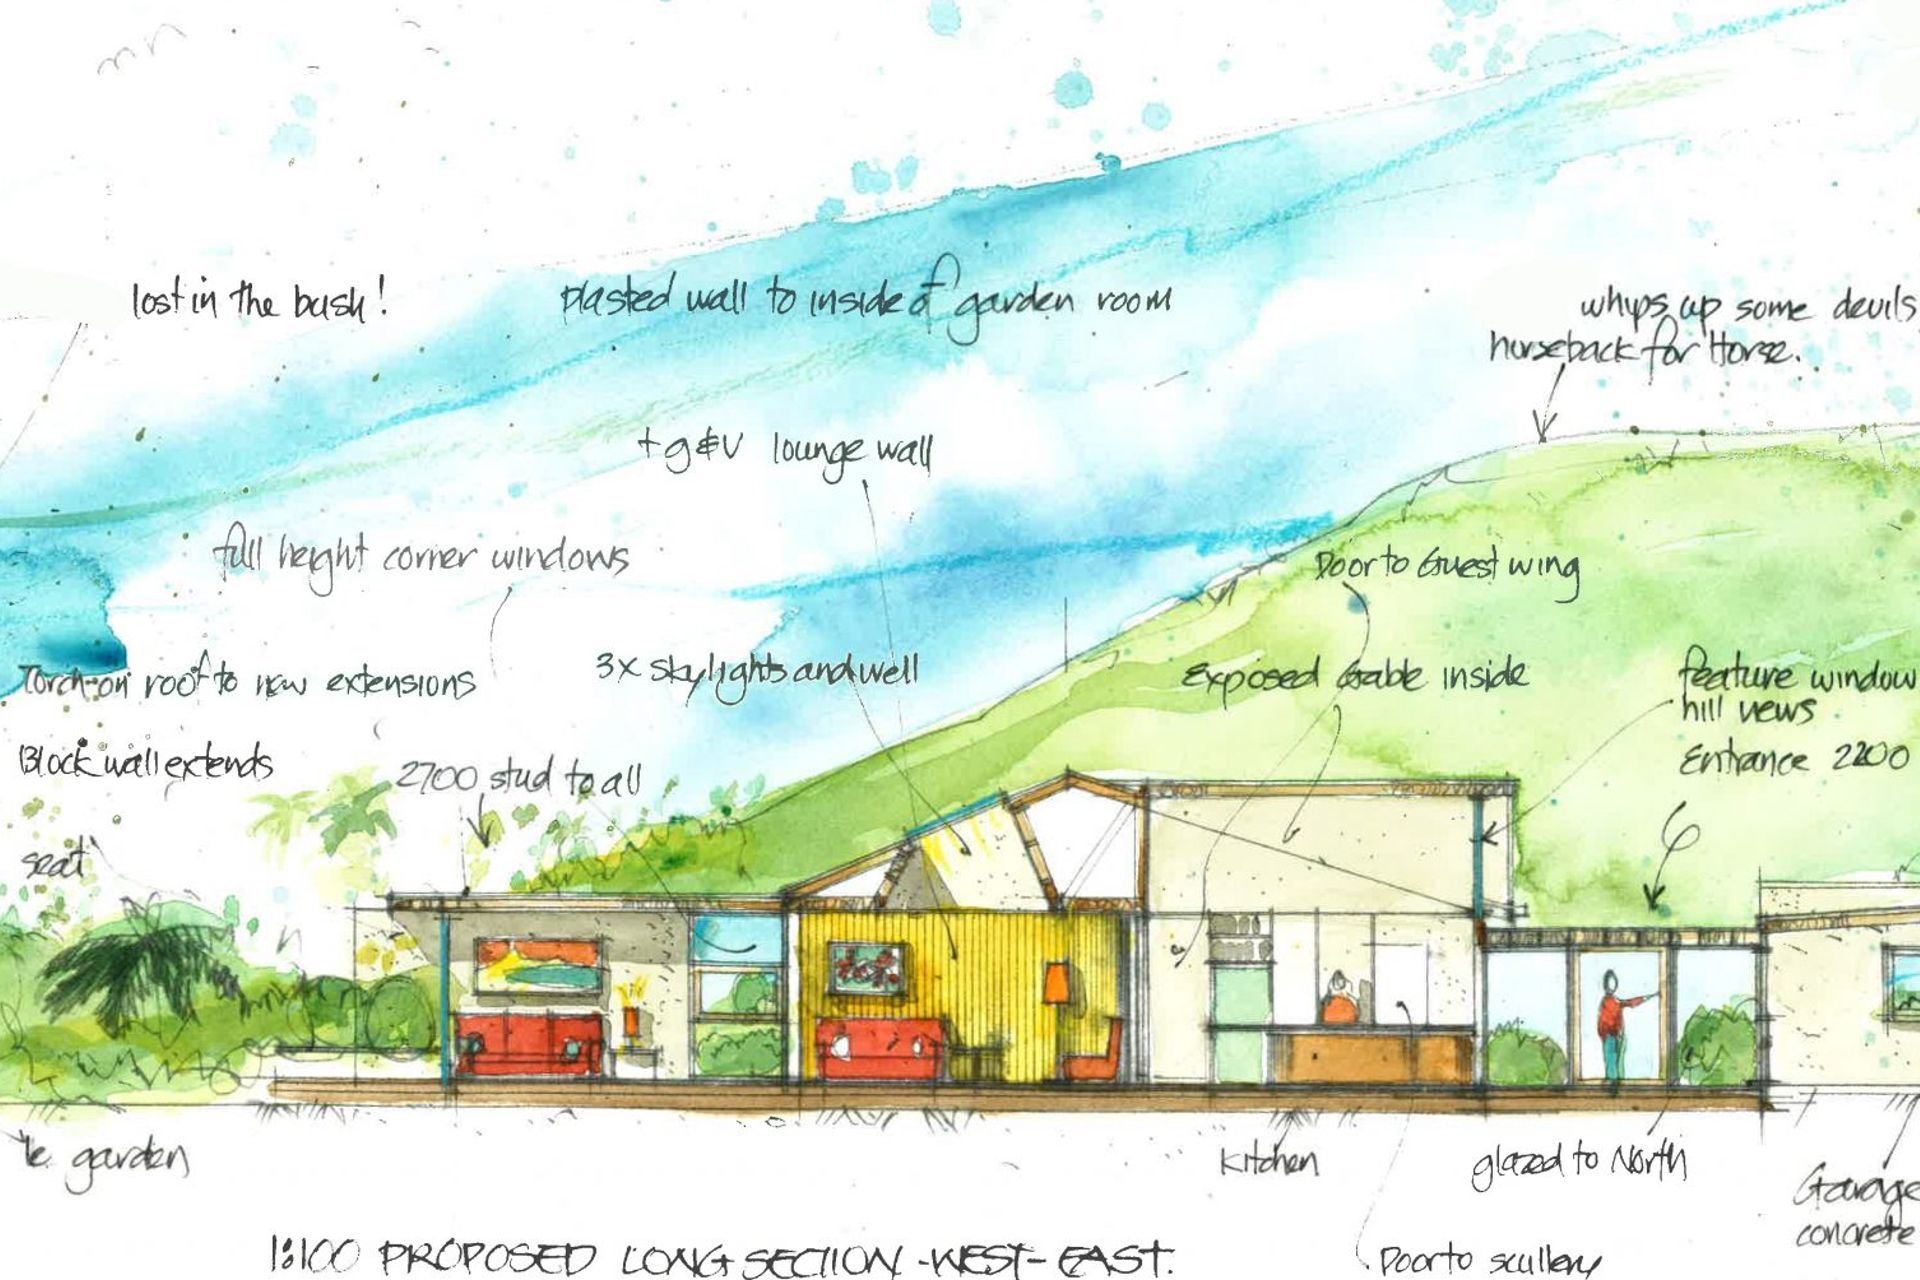 lost in the bush!
plasted wall to inside of garden room
whips up some devils
horseback for Horse.
t g & v lounge wall
full height corner windows
Door to Guest wing
Torch-on roof to new extensions
3x skylights and well
Exposed Gable inside
feature window
hill views
Block wall extends
2700 stud to all
Entrance 2200
seat
le garden
Kitchen
glazed to North
Garage
concrete
1:100 PROPOSED LONG SECTION - WEST - EAST.
Door to scullery